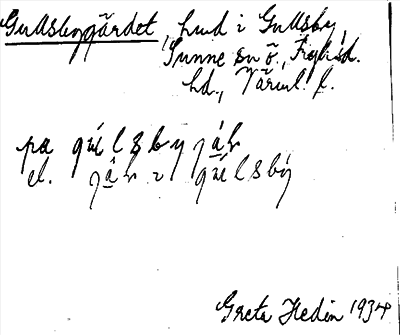 Gullsbygärdet, hmd i Gullsby,
Sunne sn ö., Fryksd.
hd., Värml. l.
på gúlsbyjáh
el. jáh i gúlsbý
Greta Hedin 1934